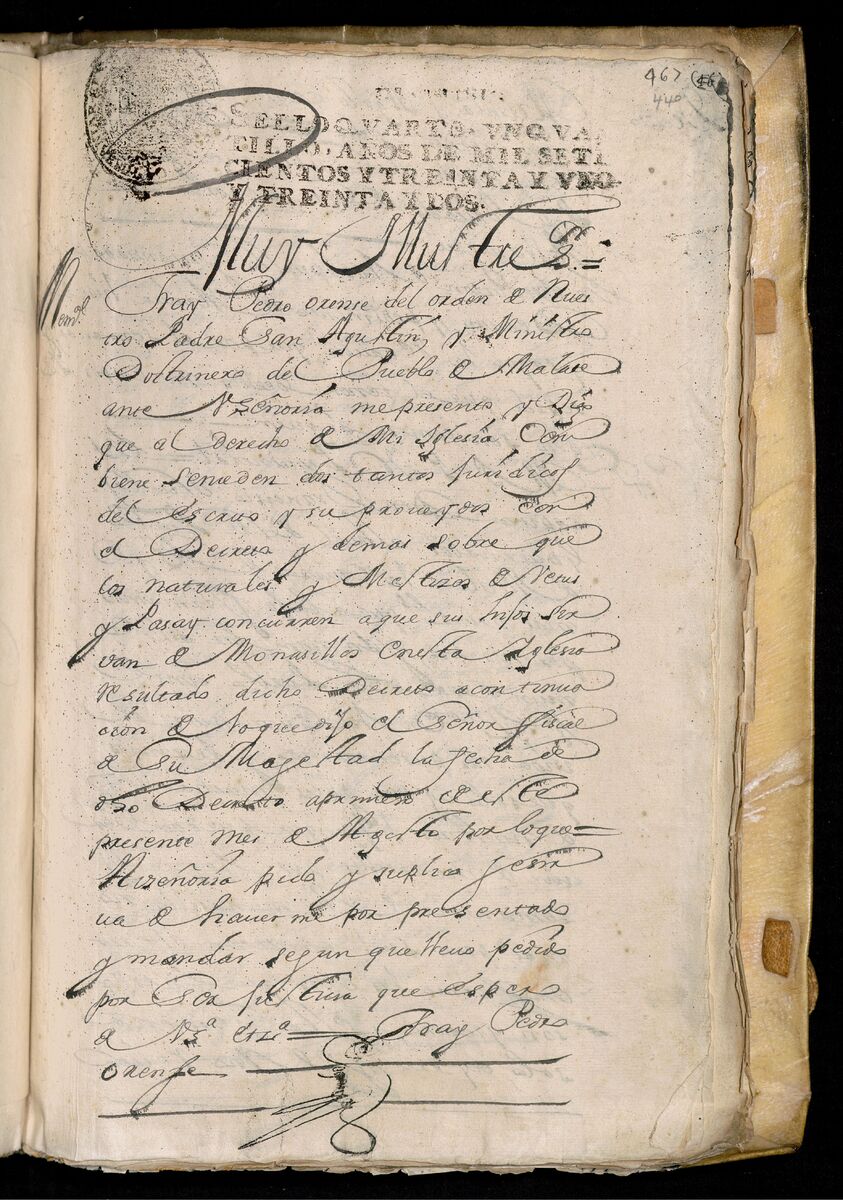 467
440
SELLO QVARTO, VN QVAR
TILLO, AÑOS DE MIL SETE
CIENTOS Y TREINTA Y VNO
Y TREINTA Y DOS.
Muy Illustre S.or
Mem.l
Fray Pedro orense del orden de Nues
tro Padre San Agustin, y Ministro
Doctrinero del Pueblo de Malate
ante VSeñoria me presento y Digo
que al derecho de Mi Iglesia Com
biene se me den dos tantos Juridicos
del Escrito y su proueydos con
el Decreto y demas sobre que
los naturales y Mestizos de
y Pasay concurren a que sus hijos sir
van de Monasillos en esta Iglesia
resultado dicho Decreto a continua
cion de lo que dijo el Señor fiscal
de Su Magestad la fecha de
dho Decreto a primero de este
presente mes de Agosto por lo que
A VSeñoria pido y suplico se sir
ua de hauerme por presentado
y mandar segun que lleuo pedido
por Ser justicia que espero
de Fray Pedro
orense